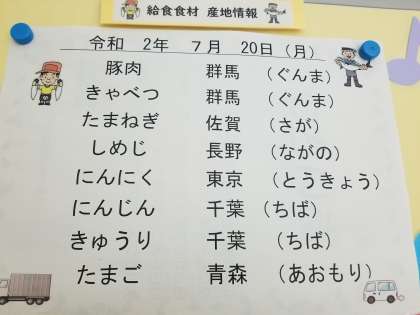 給食食材 産地情報
令和 2年 7月 20日(月)
豚肉 群馬 (ぐんま)
きゃべつ 群馬 (ぐんま)
たまねぎ 佐賀 (さが)
しめじ 長野 (ながの)
にんにく 東京 (とうきょう)
にんじん 千葉 (ちば)
きゅうり 千葉 (ちば)
たまご 青森 (あおもり)